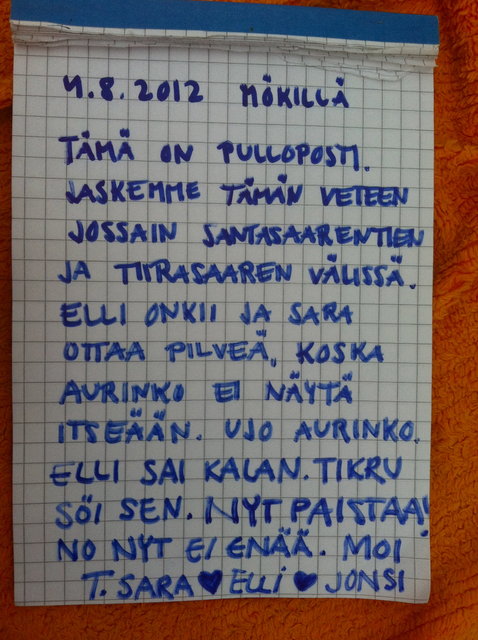 4.8.2012 MÖKILLÄ
TÄMÄ ON PULLOPOSTI.
LASKEMME TÄMÄN VETEEN
JOSSAIN SANTASAARENTIEN
JA TIIRASAAREN VÄLISSÄ.
ELLI ONKII JA SARA
OTTAA PILVEÄ, KOSKA
AURINKO EI NÄYTÄ
ITSEÄÄN. UJO AURINKO.
ELLI SAI KALAN. TIKRU
SÖI SEN. NYT PAISTAA!
NO NYT EI ENÄÄ. MOI
T. SARA ♥ ELLI ♥ JONSI